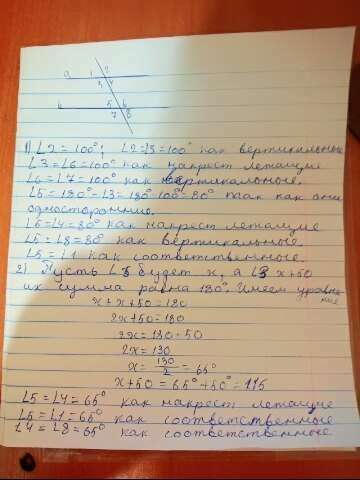 a 1 2
3 4
b 5 6
7 8
1) ∠2=100°; ∠2=∠3=100° как вертикальные
∠3=∠6=100° как накрест лежащие
∠6=∠7=100° как вертикальные.
∠5=180°-∠3=180°-100°=80° так как они
односторонние.
∠5=∠4=80° как накрест лежащие
∠5=∠8=80° как вертикальные
∠5=∠1 как соответственные.
2) Пусть ∠5 будет x, а ∠3 x+50
их сумма равна 180°. Имеем уравне
ние
x+x+50=180
2x+50=180
2x=180-50
2x=130
x=130/2=65°
x+50=65°+50°=115
∠5=∠4=65° как накрест лежащие
∠5=∠1=65° как соответственные
∠4=∠8=65° как соответственные